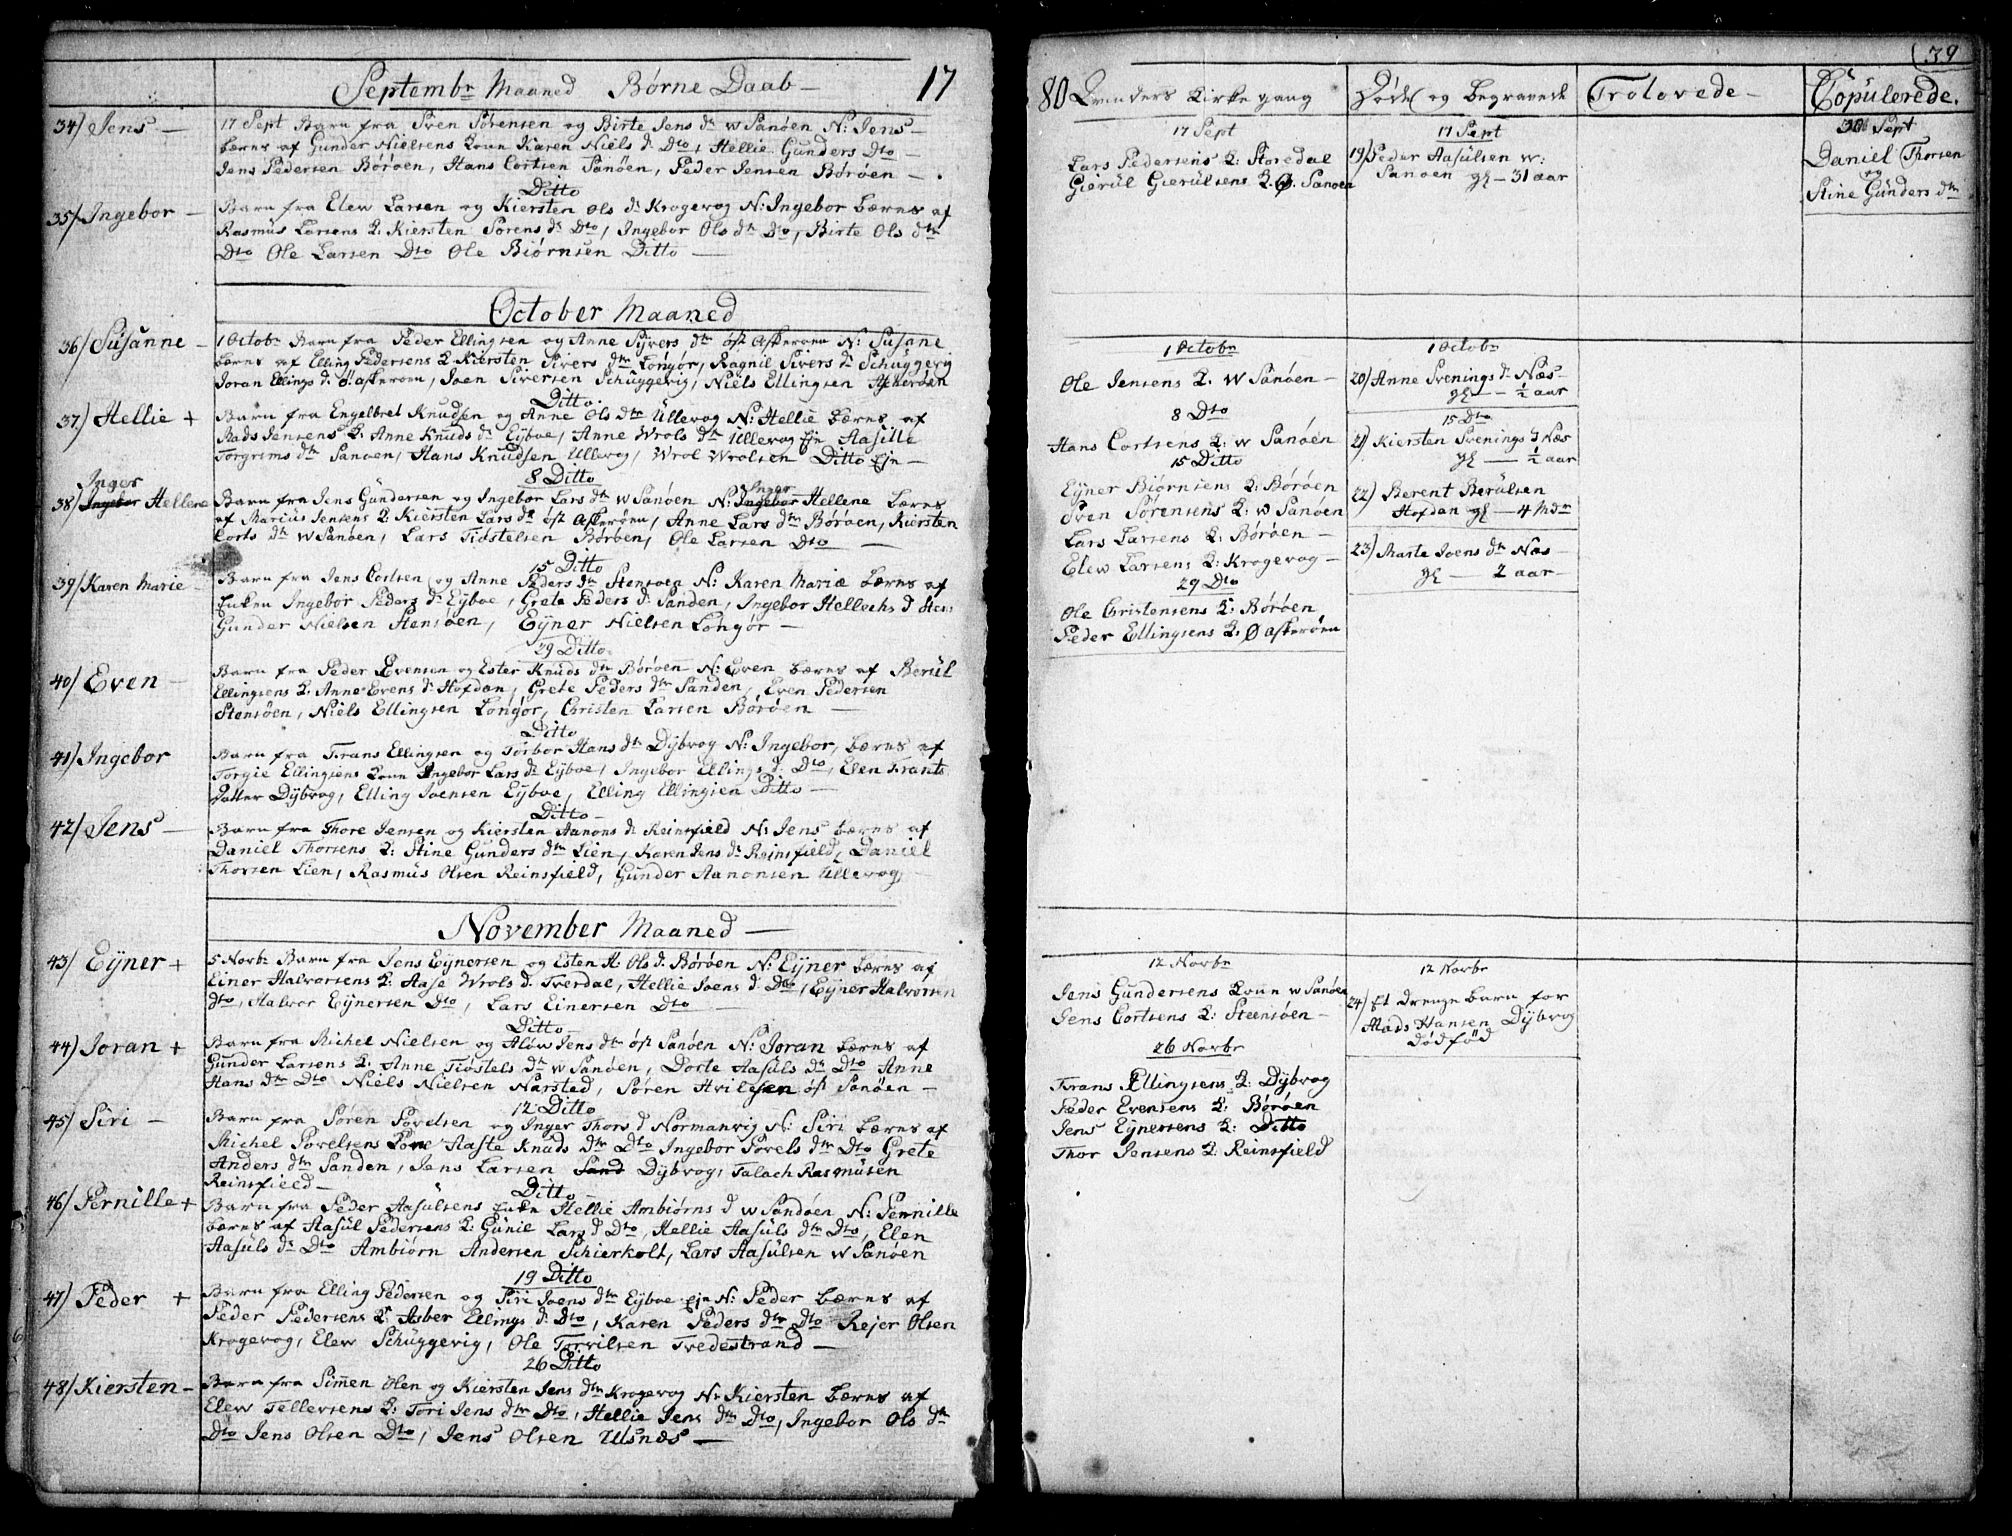 Septembr Maaned Børne Daab 17
34/ Jens
17 Sept Barn fra Sven Sørensen og Birte Jens dr w Sanøen N: Jens
bæres af Gunder Nielsens Kone Karen Niels dr Dto, Hellie Gunders Dto
Jens Pedersen Børøen, Hans Cortsen Sanøen, Peder Jensen Børøen
Ditto
35/ Ingebor
Barn fra Elew Larsen og Kiersten Ols dr Krogevog N: Ingebor bæres af
Rasmus Larsens K: Kiersten Sørens dr Dto, Ingebor Ols dr Do, Birte Ols dtr
Dto Ole Larsen Dto Ole Biørnsen Ditto
October Maaned
36/ Susanne
1 Octobr Barn fra Peder Ellingsen og Anne Sijvers dtr öst Askerøen N: Susane
bæres af Elling Pedersens K Kiersten Sivers dtr Longør, Ragnil Sivers dr Schuggevig
Joran Ellings dr ö Askerøen, Joen Siversen Schuggevig, Niels Ellingsen Askerøen
Ditto
37) Hellie +
Barn fra Engelbret Knudsen og Anne Ols dtr Ullevog N: Hellie bæres af
Mads Jensens K: Anne Knuds dr Eijboe, Anne Wrols dtr Ullevog Eje Aasille
Torgrims dtr Sanøen, Hans Knudsen Ullevog, Wrol Wrolsen Ditto Eje
8 Ditto
Inger
38/ Ingebor Hellene
Barn fra Jens Gundersen og Ingebor Lars dtr w Sanøen N: Inger Ingebor Hellene bæres
af Marius Jensens K Kiersten Lars dr öst Askerøen, Anne Lars dtr Børøen, Kiersten
Corts dtr w Sanøen, Lars Tiøstelsen Børøen, Ole Larsen Dto
15 Ditto
39/ Karen Marie
Barn fra Jens Cortsen og Anne Peders dtr Stensøen N: Karen Marie bæres af
Enken Ingebor Peders dr Eijboe, Grete Peders dr Sanden, Ingebor Hellechs d Stens
Gunder Nielsen Stensøen, Eijner Nielsen Longør
29 Ditto
40/ Even
Barn fra Peder Evensen og Ester Knuds dtr Børøen N: Even bæres af Berul
Ellingsens K: Anne Evens dr Hofdan, Grete Peders dtr Sanden, Even Pedersen
Stensøen, Niels Ellingsen Longør, Christen Larsen Børøen
Ditto
41) Ingebor
Barn fra Frans Ellingsen og Torbor Hans dtr Dijbvog N: Ingebor, bæres af
Torgie Ellingsens Kone Ingebor Lars dr Eijboe, Ingebor Ellings d: Dto, Elen Frants
Datter Dijbvog, Elling Joensen Eijboe, Elling Ellingsen Ditto
Ditto
42/ Jens
Barn fra Thore Jensen og Kiersten Aanons dr Reinsfield N: Jens bæres af
Daniel Thorsens K: Stine Gunders dtr Lien, Karen Jens dr Reinsfield, Daniel
Thorsen Lien, Rasmus Olsen Reinsfield, Gunder Aanonsen Ullevog
November Maaned
43) Eijner +
5 Novbr Barn fra Jens Eijnersen og Esten A. Ols dr Børøen N: Eijner bæres af
Einer Halvorsens K: Aase Wrols d. Tverdal, Hellie Joens d: Dto, Eijner Halvorsen
dto, Halvor Eijnersen Dto, Lars Einersen Dto
Ditto
44) Joran +
Barn fra Michel Nielsen og Alow Jens dtr öst Sanøen N: Joran bæres af
Gunder Larsens K: Anne Tiøstels dtr w Sanøen, Dorte Aasuls dr Dto Anne
Hans dtr Dto Niels Nielsen Narsted, Søren Hvilesen öst Sanøen
12 Ditto
45) Siri
Barn fra Søren Sovelsen og Inger Thors d Normanvig N: Siri bæres af
Michel Sovelsens Kone Aaste Knuds dtr Dto Ingebor Sovels dtr Dto Grete
Anders dtr Sanden, Jens Larsen Sand Dijbvog, Falach Rasmusen
Reinsfield
Ditto
46) Pernille +
Barn fra Peder Aasulsens Enke Hellie Ambiørns d w Sandøen N: Pernille
bæres af Aasul Pedersens K: Gunil Lars d Dto, Hellie Aasuls dtr Dto, Elen
Aasuls dr Dto Ambiørn Andersen Schierkolt, Lars Aasulsen w Sanøen
19 Ditto
47) Peder +
Barn fra Elling Pedersen og Siri Joens dtr Eijboe Eje N: Peder bæres af
Peder Pedersens K: Asber Ellings d: Dto, Karen Peders dtr Dto Rejer Olsen
Krogevog, Elew Schuggevig, Ole Torvilsen Tvedestrand
26 Ditto
48/ Kiersten
Barn fra Simen Olen og Kiersten Jens dtr Krogevog N: Kiersten bæres af
Elew Tellevsens K: Tori Jens dtr Dto, Hellie Jens dtr Dto, Ingebor Ols dtr
Dto Jens Olsen Dto, Jens Olsen Usnæs
39
80 Qvinders Kirke gang
Døde og begravede
Trolovede
Copulerede.
17 Sept
Lars Pedersens K: Storedal
Gierul Gierulsens K. Ø. Sanøen
17 Sept
19) Peder Aasulsen w:
Sanøen gl 31 aar
30 Sept
Daniel Thorsen
og
Stine Gunders dtr
1 Octobr
Ole Jensens K. W Sanøen
8 Dto
Hans Cortsens K: w Sanøen
15 Ditto
Eijner Biørnsens K: Børøen
Sven Sørensens K: w Sanøen
Lars Larsens K: Børøen
Elew Larsens K: Krogevog
29 Dto
Ole Christensens K: Børøen
Peder Ellingsens K: Ø Askerøen
1 Octobr
20) Anne Svenings dr Næs
gl ½ aar
15 Dto
21) Kiersten Svenings d Næs
gl ½ aar
22) Berent Berulsen
Hofdan gl 4 Mdr
23) Marte Joens dtr Næs
gl 2 aar
12 Novbr
Jens Gundersens Kone w Sanøen
Jens Cortsens K: Steensøen
26 Novbr
Frans Ellingsens K: Dijbvog
Peder Evensens K: Børøen
Jens Eijnersens K: Ditto
Thor Jensens K: Reinsfield
12 Novbr
24) Et Drenge barn for
Mads Hansen Dijbvog
dødfød